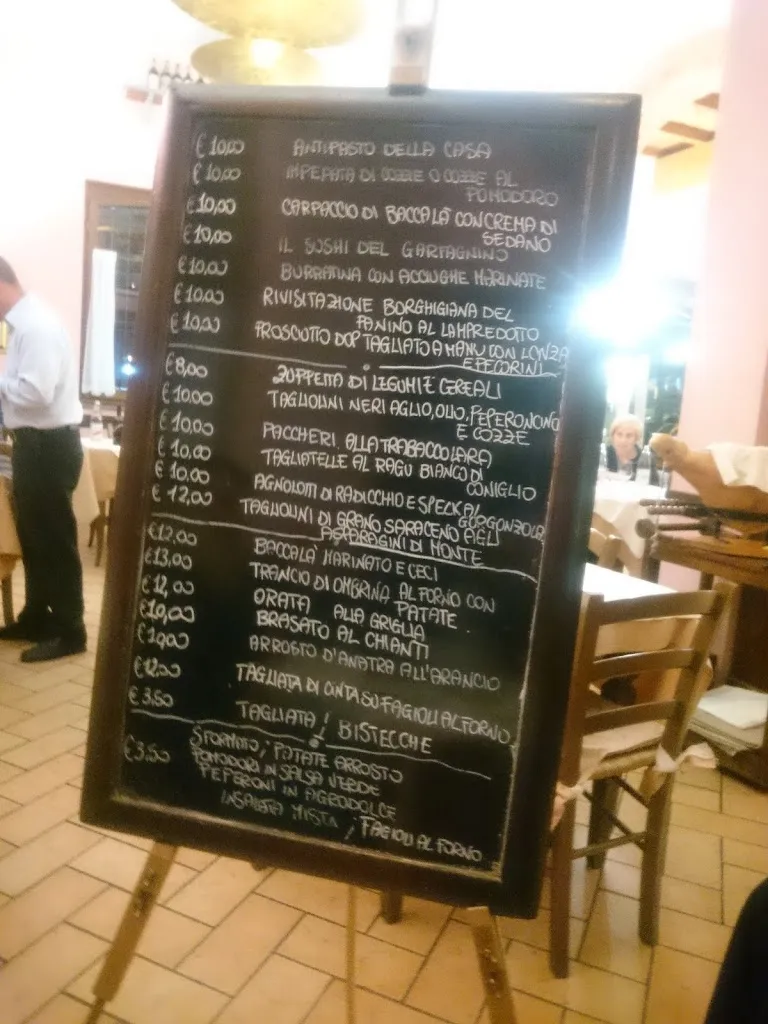 € 10,00 ANTIPASTO DELLA CASA
€ 10,00 IMPEPATA DI COZZE O COZZE AL
POMODORO
€ 10,00 CARPACCIO DI BACCALÀ CON CREMA DI
SEDANO
€ 10,00 IL SUSHI DEL GARFAGNINO
€ 10,00 BURRATINA CON ACCIUGHE MARINATE
€ 10,00 RIVISITAZIONE BORGHIGIANA DEL
PANINO AL LAMPREDOTTO
€ 10,00 PROSCIUTTO DOP TAGLIATO A MANU CON LONZA
E PECORINI
€ 8,00 ZUPPETTA DI LEGUMI E CEREALI
€ 10,00 TAGLIOLINI NERI AGLIO, OLIO, PEPERONCINO
E COZZE
€ 10,00 PACCHERI ALLA TRABACCOLARA
€ 10,00 TAGLIATELLE AL RAGU BIANCO DI
CONIGLIO
€ 10,00 AGNOLOTTI DI RADICCHIO E SPECK AL
GORGONZOLA
€ 12,00 TAGLIOLINI DI GRANO SARACENO AGLI
ASPARAGINI DI MONTE
€ 12,00 BACCALÀ MARINATO E CECI
€ 13,00 TRANCIO DI OMBRINA AL FORNO CON
PATATE
€ 12,00 ORATA ALLA GRIGLIA
€ 10,00 BRASATO AL CHIANTI
€ 10,00 ARROSTO D'ANATRA ALL'ARANCIO
€ 12,00 TAGLIATA DI CINTA SU FAGIOLI AL FORNO
€ 3,50 TAGLIATA / BISTECCHE
€ 3,50 SFORMATO, PATATE ARROSTO
POMODORI IN SALSA VERDE
PEPERONI IN AGRODOLCE
INSALATA MISTA / FAGIOLI AL FORNO